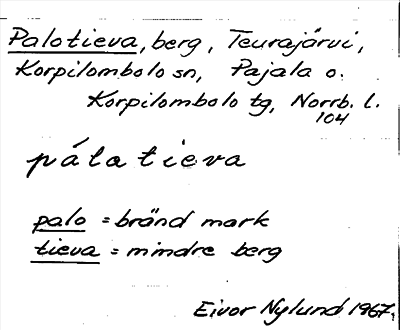 Palotieva, berg, Teurajärvi,
Korpilombolo sn, Pajala o.
Korpilombolo tg, Norrb. l.
104
pálatieva
palo = bränd mark
tieva = mindre berg
Eivor Nylund 1967.